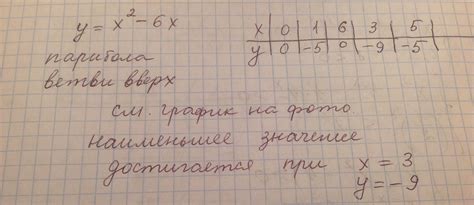 y = x² - 6x
x | 0 | 1 | 6 | 3 | 5 |
y | 0 | -5 | 0 | -9 | -5 |
парабола
ветви вверх
см. график на фото
наименьшее значение
достигается при x = 3
y = -9